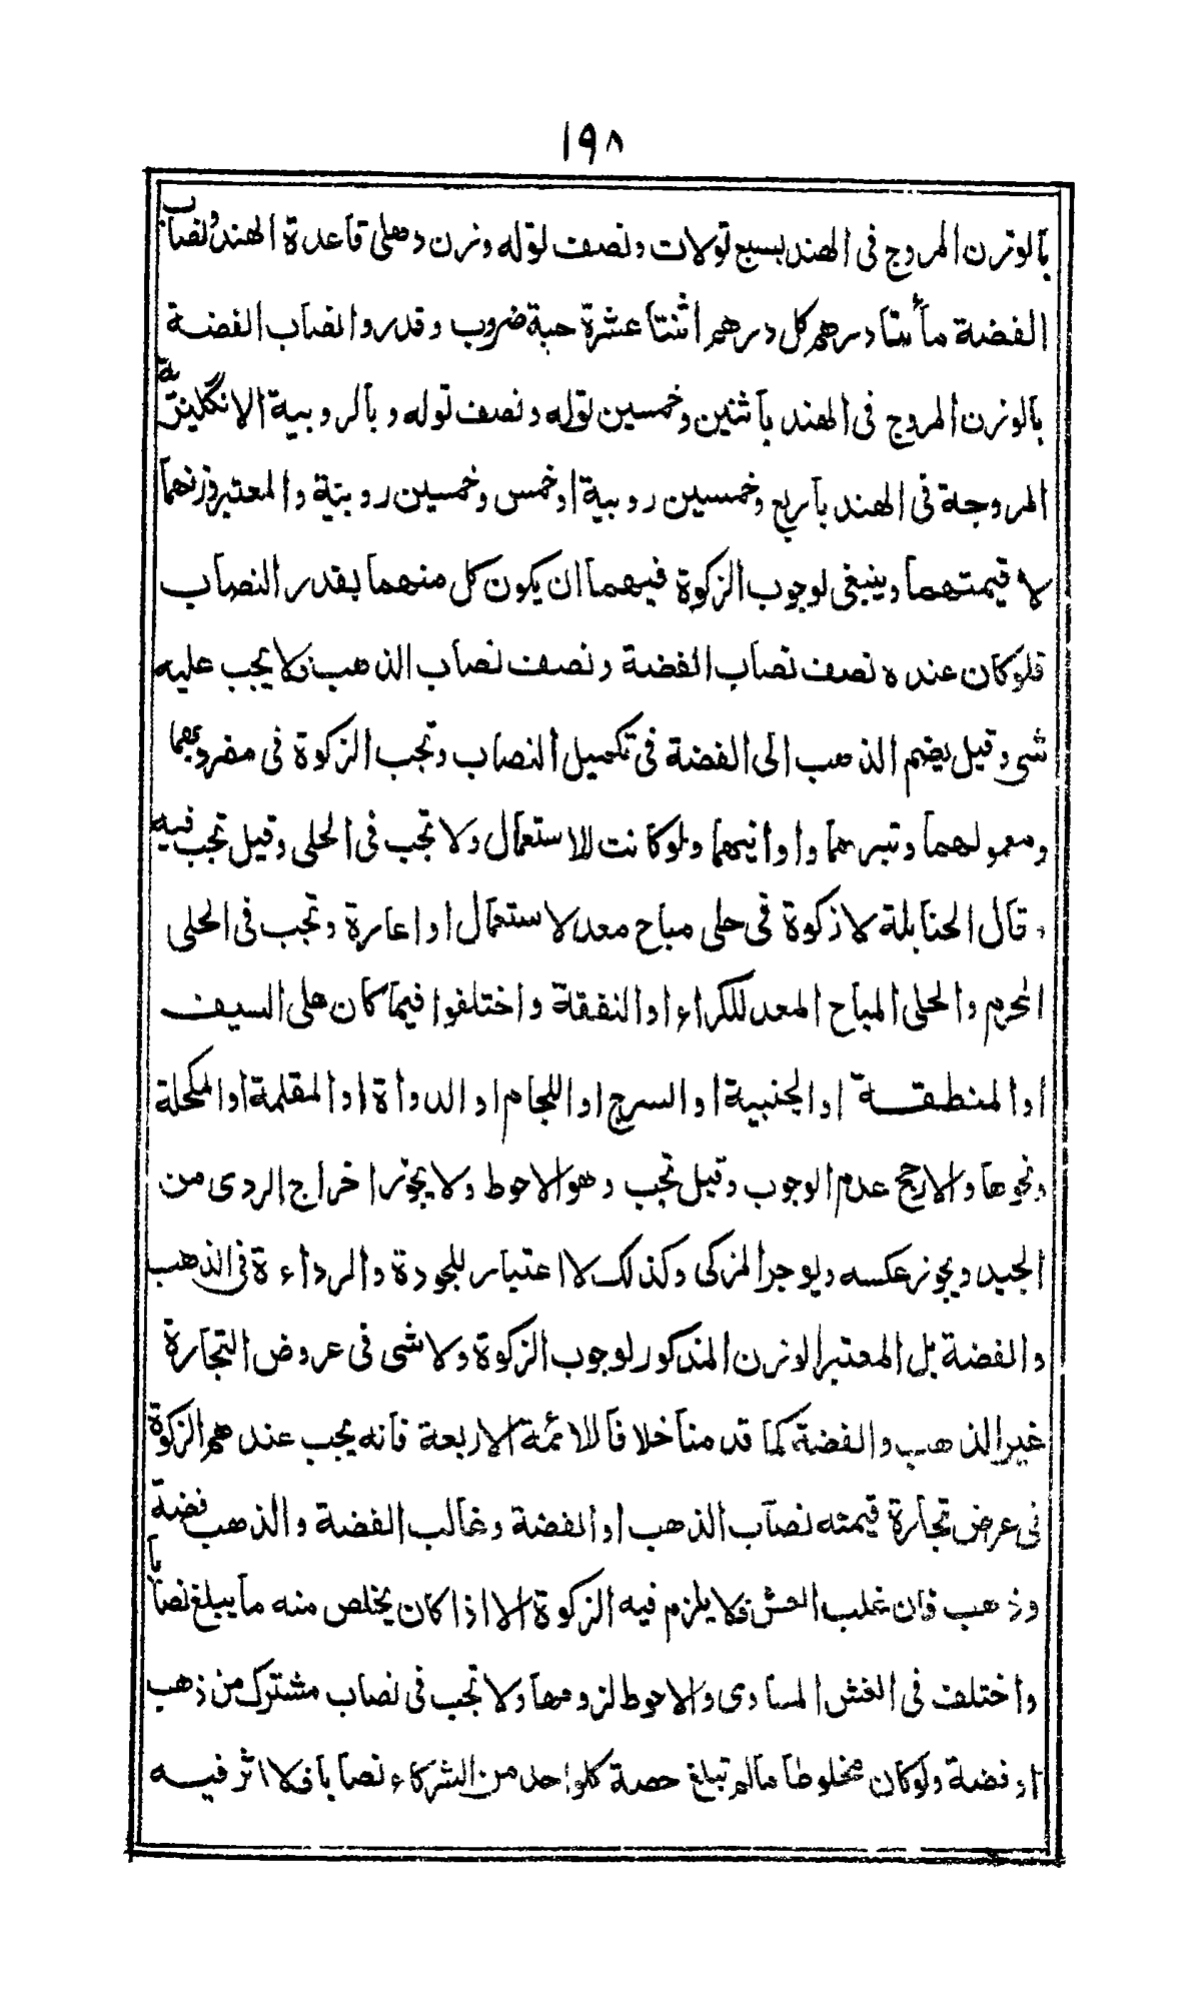 ١٩٨
بالوزن المروج فى الهند بسبع تولات ونصف توله وزن دهلى قاعدة الهند ونصاب
الفضة مأتتا درهم كل درهم اثنتا عشرة حبة خروب وقدروا نصاب الفضة
بالوزن المروج فى الهند باثنين وخمسين توله ونصف توله وبالروبية الانگليزية
المروجة فى الهند باربع وخمسين روبية او خمس وخمسين روبية والمعتبر وزنهما
لا قيمتهما وينبغى لوجوب الزكوة فيهما ان يكون كل منهما بقدر النصاب
فلو كان عنده نصف نصاب الفضة ونصف نصاب الذهب فلا يجب عليه
شى وقيل يضم الذهب الى الفضة فى تكميل النصاب وتجب الزكوة فى مضروبهما
ومعمولهما وتبرهما واوانيهما ولو كانت للاستعمال ولا تجب فى الحلى وقيل تجب فيه
وقال الحنابلة لا زكوة فى حلى مباح معد لاستعمال او اعارة وتجب فى الحلى
المحرم والحلى المباح المعد للكراء او النفقة واختلفوا فيما كان على السيف
او المنطقة او الجنبية او السرج او اللجام او الدواة او المقلمة او المكحلة
ونحوها والارجح عدم الوجوب وقيل تجب وهو الاحوط ولا يجوز اخراج الردى من
الجيد ويجوز عكسه ويوجر المزكى وكذلك لا اعتبار للجودة والرداءة فى الذهب
والفضة بل المعتبر الوزن المذكور لوجوب الزكوة ولا شى فى عروض التجارة
غير الذهب والفضة كما قدمنا خلافا للائمة الاربعة فانه يجب عندهم الزكوة
فى عرض تجارة قيمته نصاب الذهب او الفضة وغالب الفضة والذهب فضة
وذهب فان غلب الغش فلا يلزم فيه الزكوة الا اذا كان يخلص منه ما يبلغ نصابا
واختلف فى الغش المساوى والاحوط لزومها ولا تجب فى نصاب مشترك من ذهب
او فضة ولو كان مخلوطا مالم تبلغ حصة كلواحد من الشركاء نصابا فلا اثر فيه